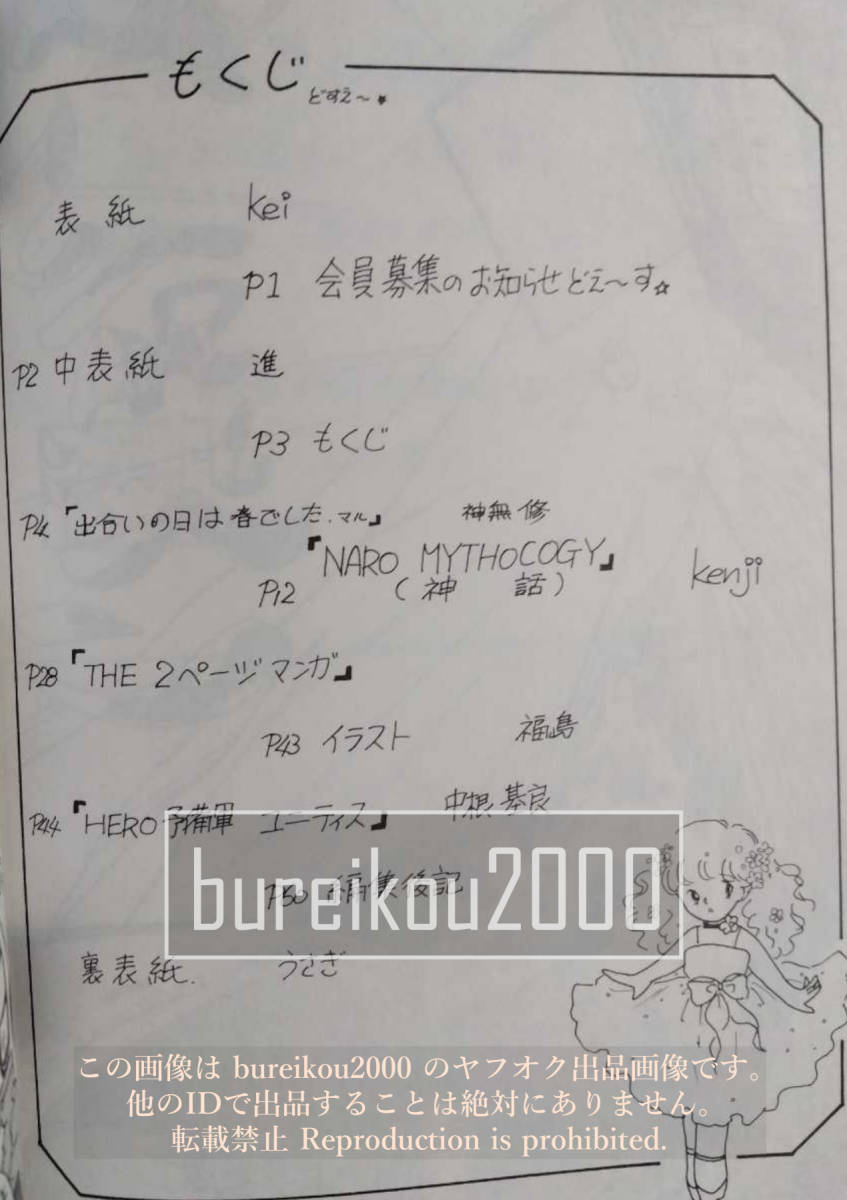 もくじ
どすえ〜★
表紙 kei
P1 会員募集のお知らせどえ〜す☆
P2 中表紙 進
P3 もくじ
P4 『出合いの日は春でした.マル』 神無修
『NARO MYTHOCOGY』
P12 (神話) kenji
P28 『THE 2ページマンガ』
P43 イラスト 福島
P44 『HERO予備軍 ユーティス』 中根基良
P50 編集後記
bureikou2000
裏表紙. うさぎ
この画像は bureikou2000 のヤフオク出品画像です。
他のIDで出品することは絶対にありません。
転載禁止 Reproduction is prohibited.